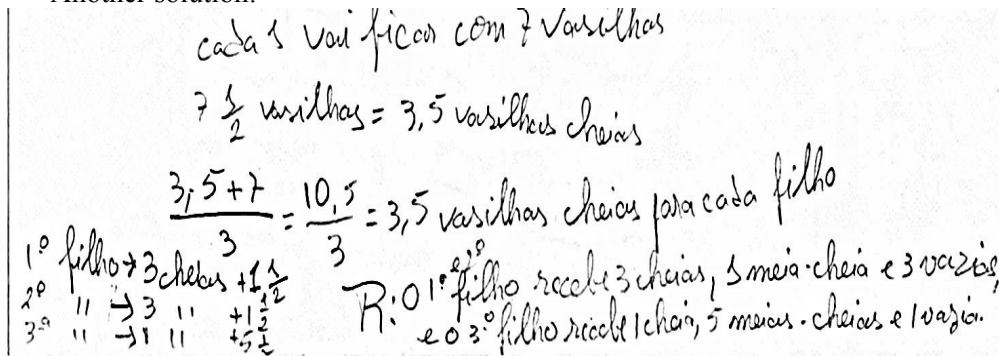 Another solution:
cada 1 vai ficar com 7 vasilhas
7 1/2 vasilhas = 3,5 vasilhas cheias
(3,5+7)/3 = 10,5/3 = 3,5 vasilhas cheias para cada filho
1º filho → 3 cheias + 1 1/2
2º " → 3 " + 1 1/2
3º " → 1 " + 5 1/2
R: O 1º e 2º filho recebe 3 cheias, 1 meia-cheia e 3 vazias,
e o 3º filho recebe 1 cheia, 5 meias-cheias e 1 vazia.